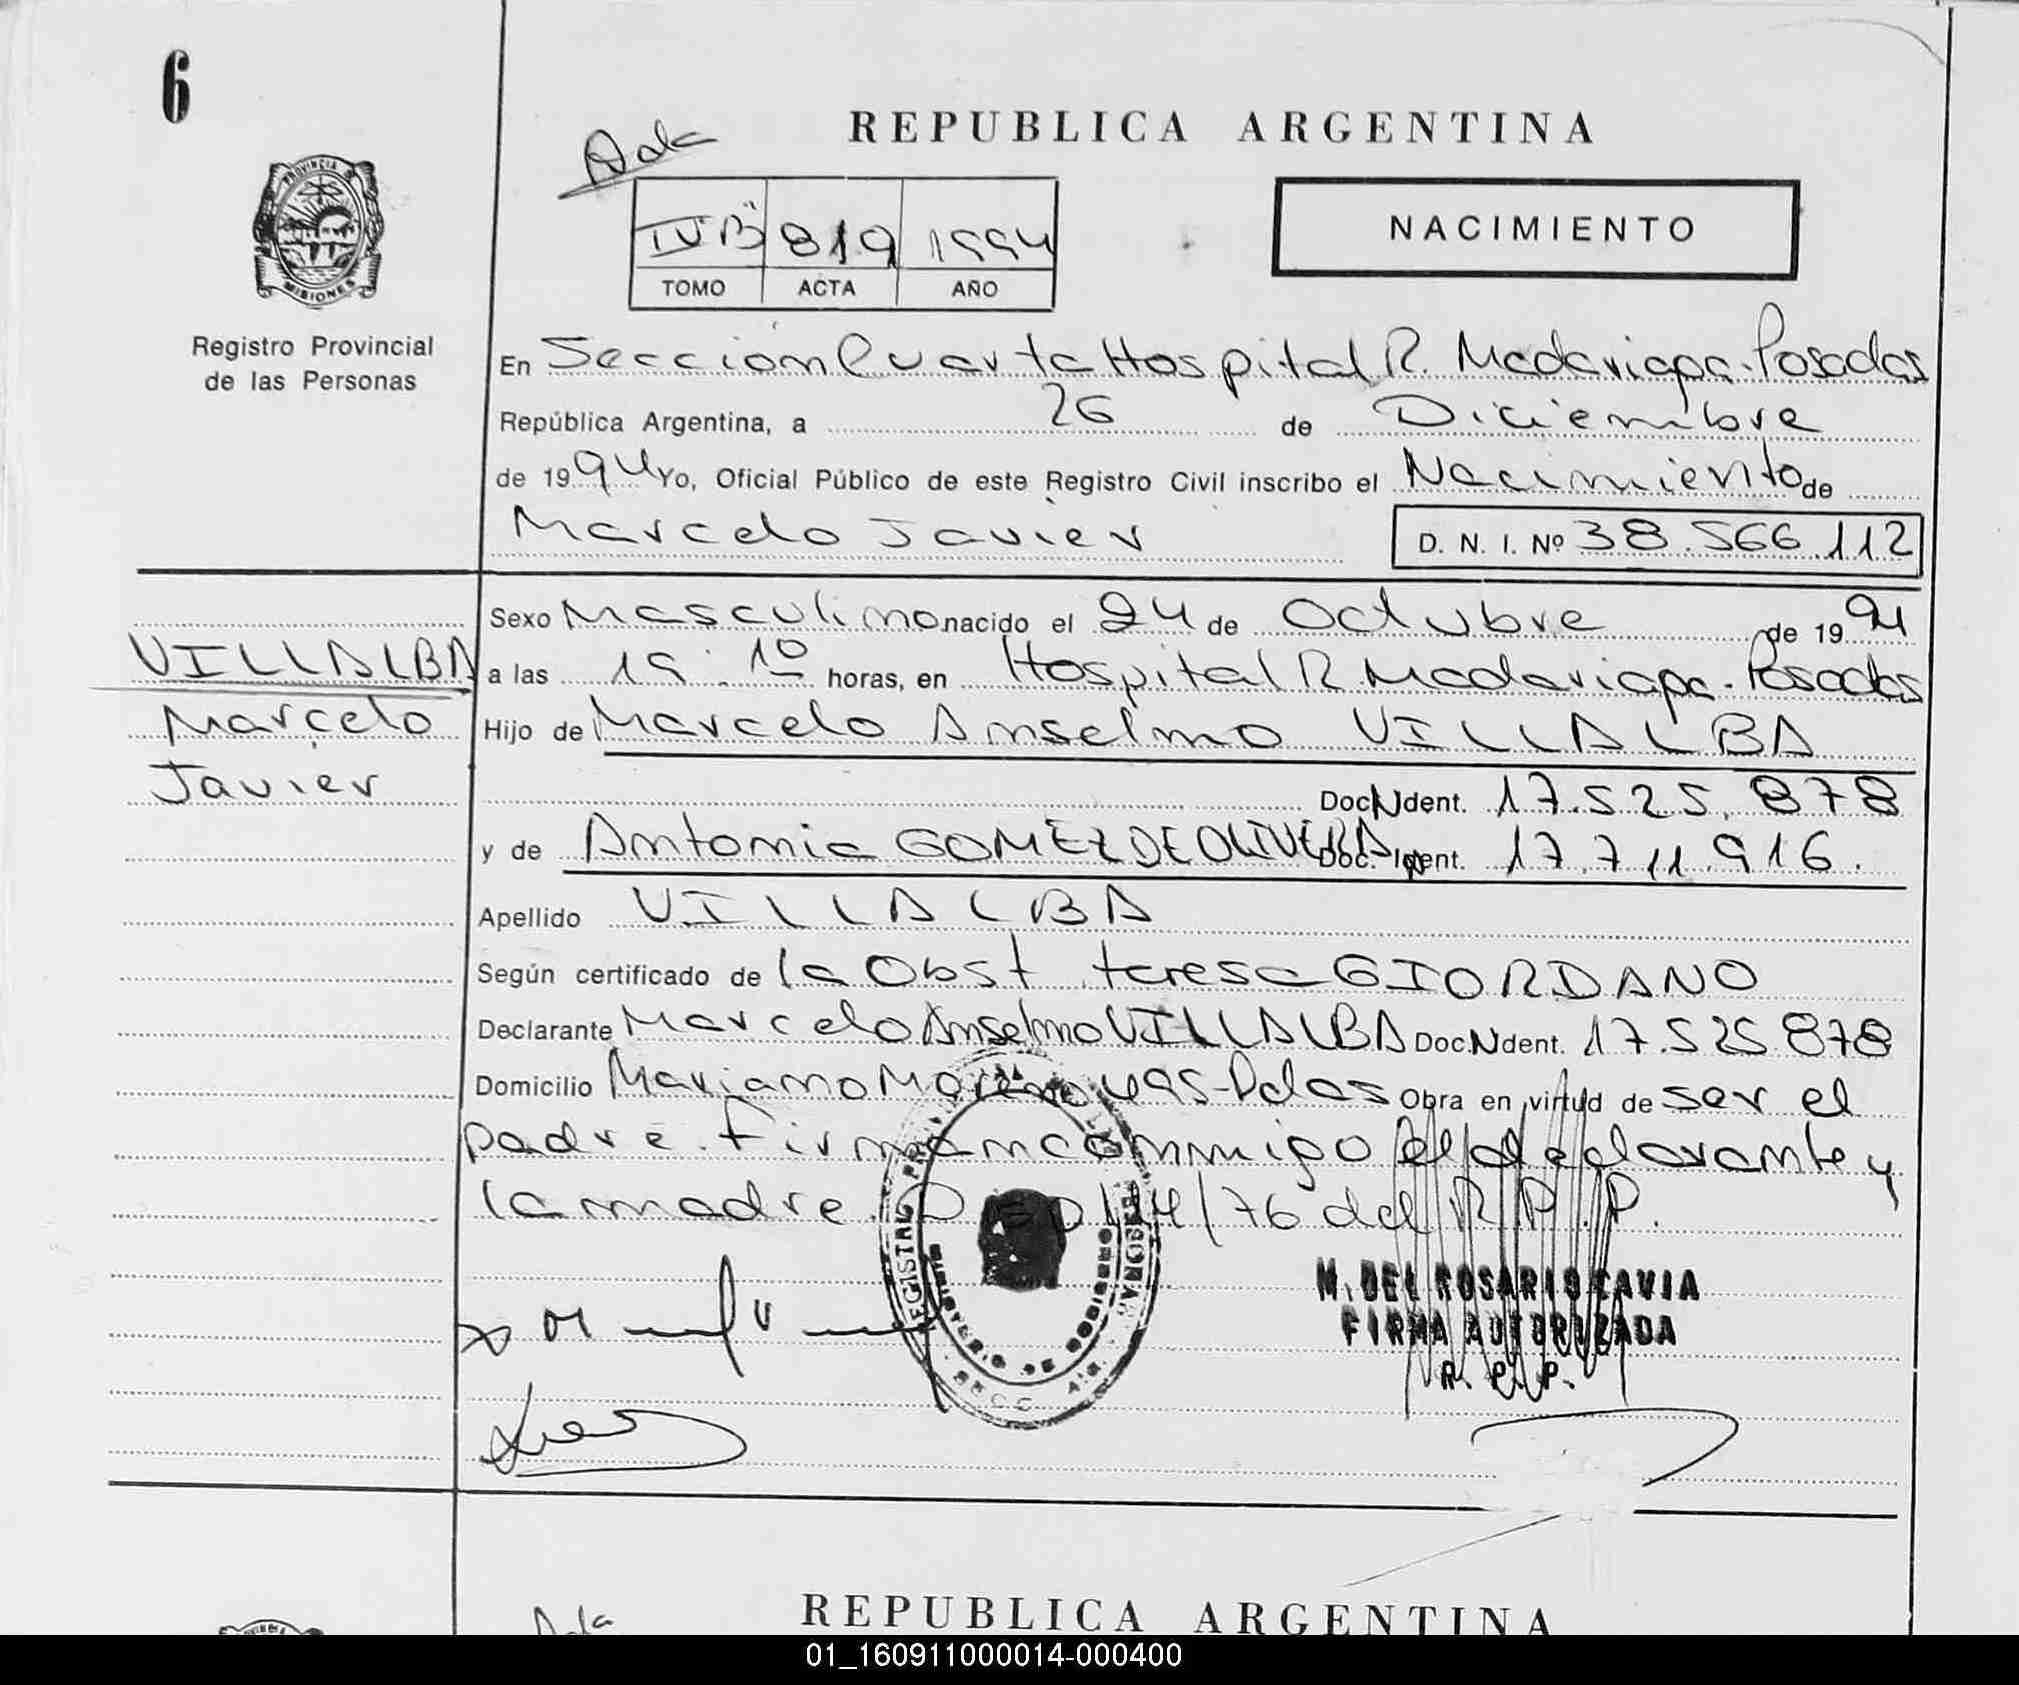 6
REPUBLICA ARGENTINA
Ada
IV "B" 819 1994
TOMO ACTA AÑO
NACIMIENTO
PROVINCIA
MISIONES
Registro Provincial
de las Personas
En Sección Cuarta Hospital R. Madariaga. Posadas
República Argentina, a 26 de Diciembre
de 1994 Yo, Oficial Público de este Registro Civil inscribo el Nacimiento de
Marcelo Javier D. N. I. Nº 38.566.112
Sexo Masculino nacido el 24 de Octubre de 1994
VILLALBA
Marcelo
Javier
a las 19:10 horas, en Hospital R. Madariaga. Posadas
Hijo de Marcelo Anselmo VILLALBA
Doc. N Ident. 17.525.878
y de Antonia GOMEZ DE OLIVERA Doc. Ident. 17.711.916.
Apellido VILLALBA
Según certificado de la Obst. teresa GIORDANO
Declarante Marcelo Anselmo VILLALBA Doc. N Ident. 17.525.878
Domicilio Mariano Moreno 495-Pdas Obra en virtud de ser el
padre. Firman conmigo el declarante y
la madre. 114/76 del R.P.P.
MINISTERIO DE GOBIERNO
SECC. 4ta.
M. DEL ROSARIO CAVIA
FIRMA AUTORIZADA
R. P. P.
REPUBLICA ARGENTINA
Ada
01_160911000014-000400